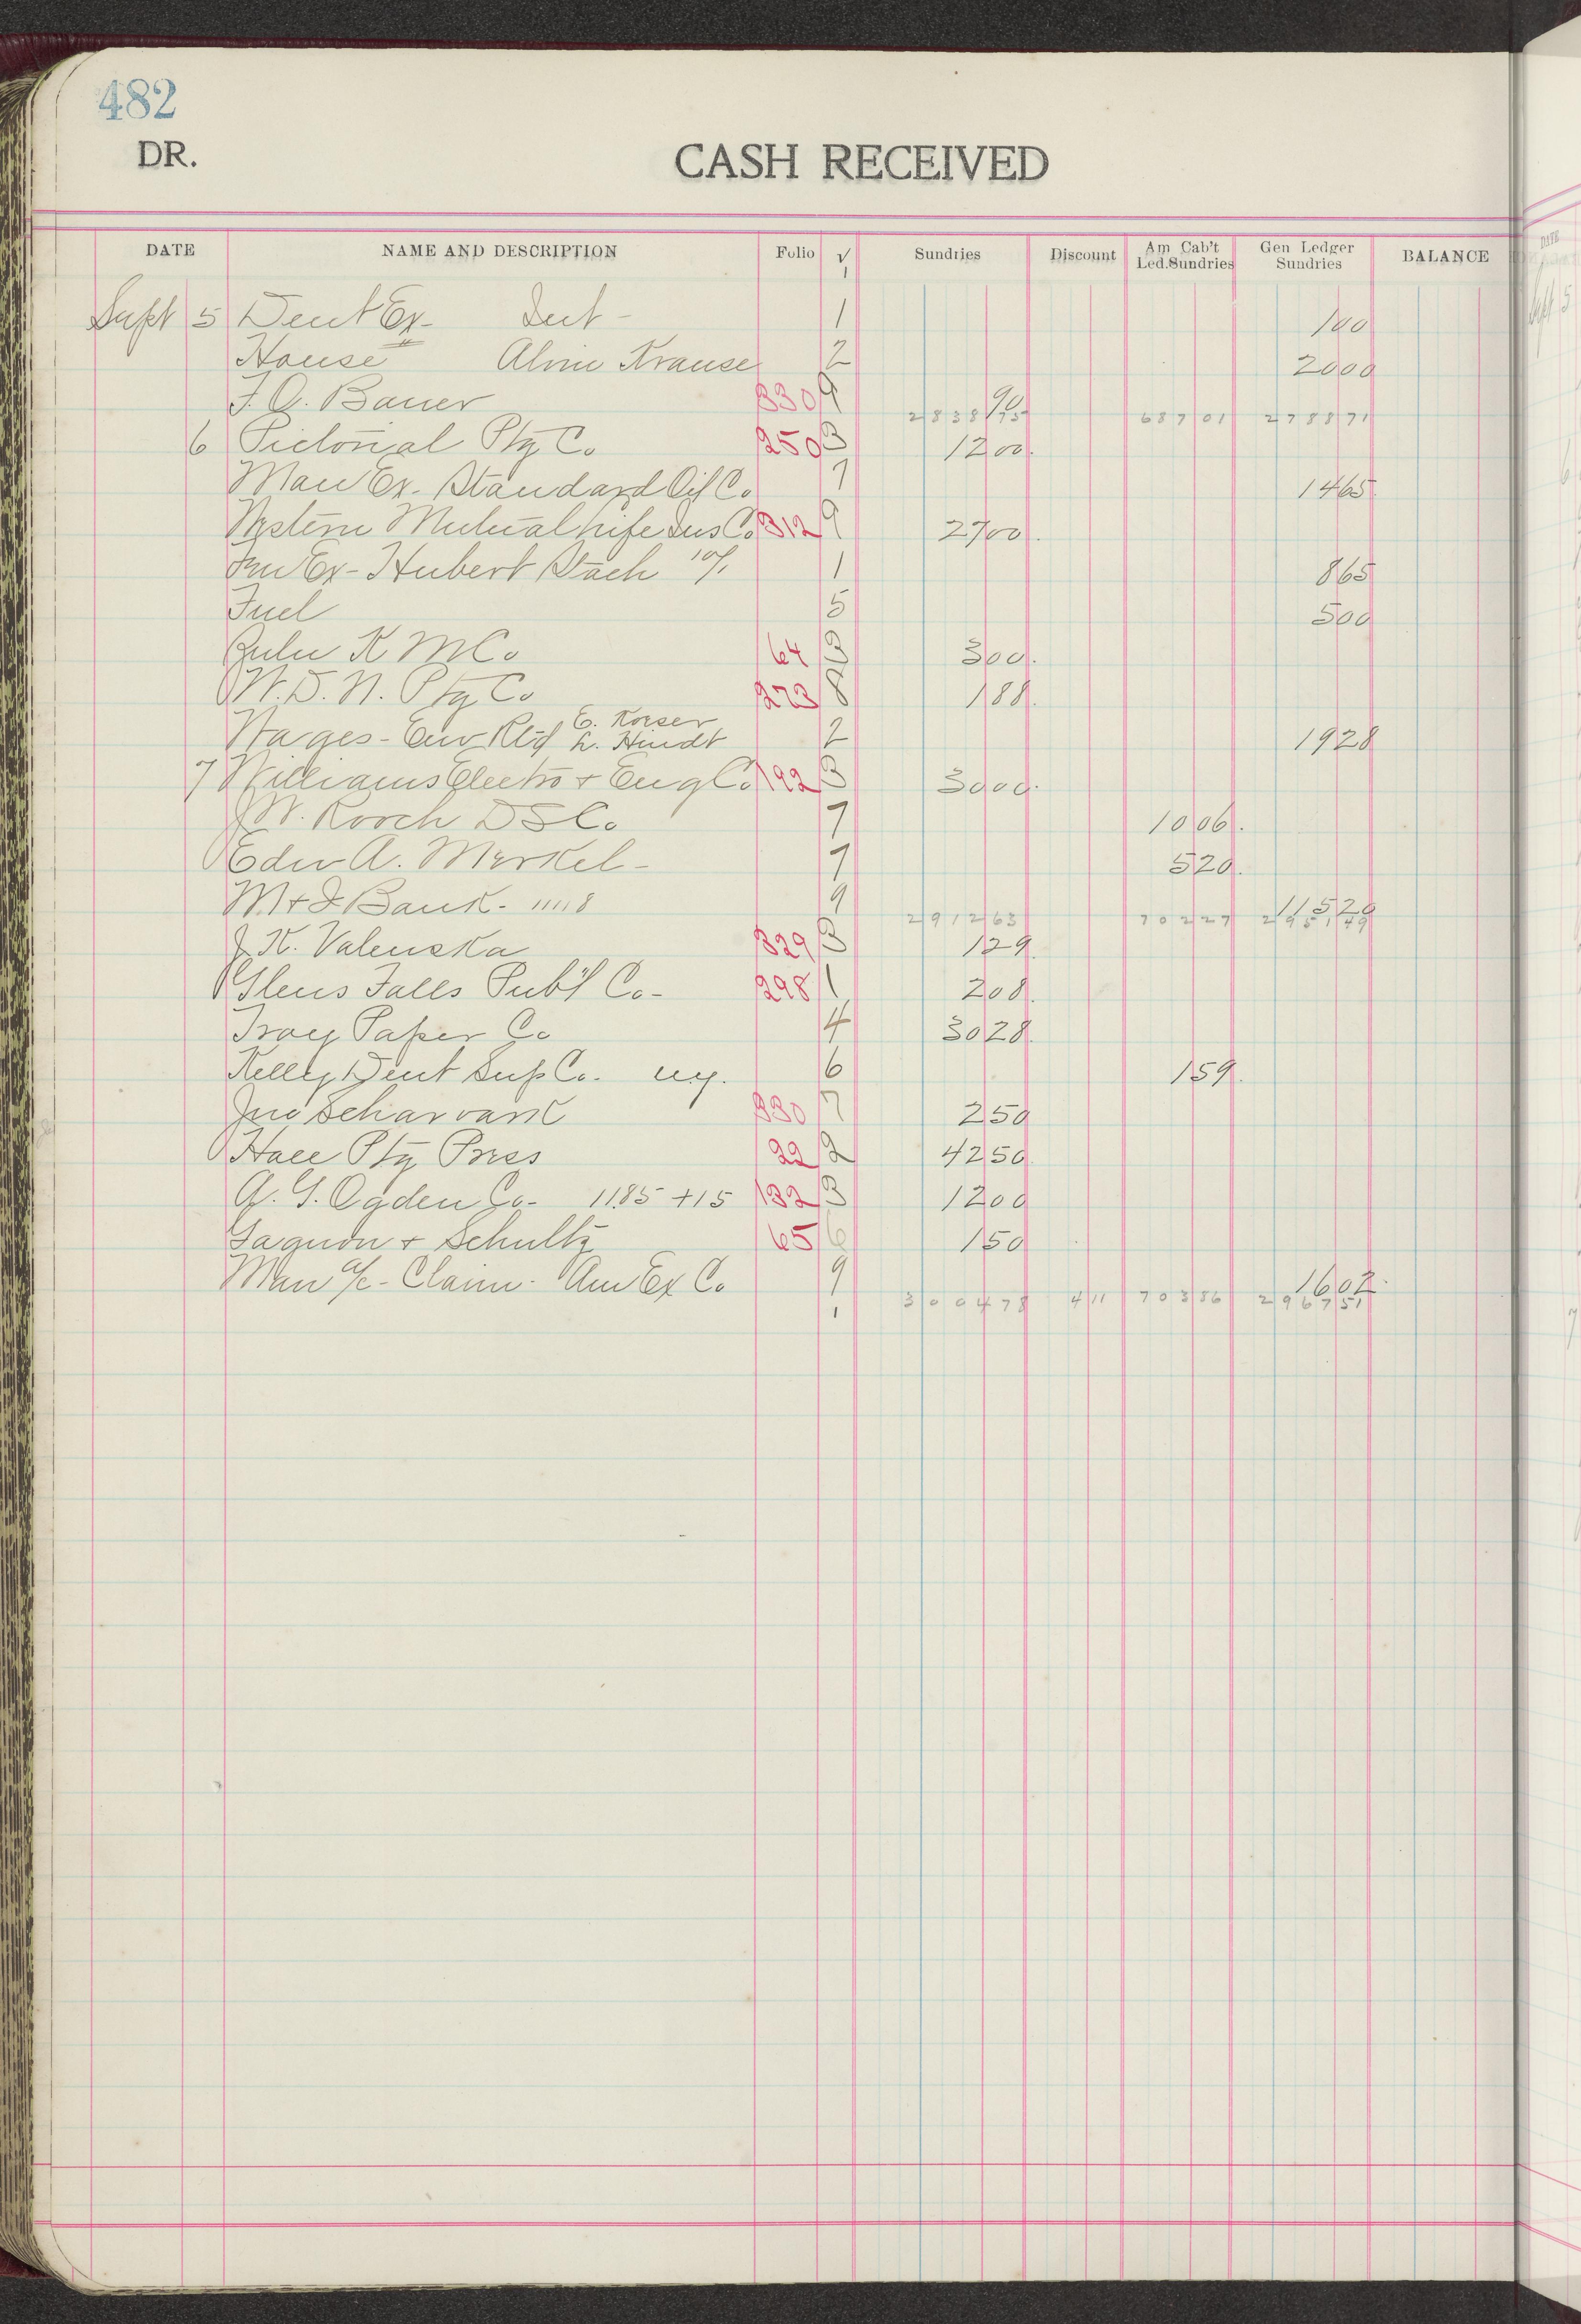 482
DR.
CASH RECEIVED
DATE NAME AND DESCRIPTION Folio √ Sundries Discount Am Cab't Led.Sundries Gen Ledger Sundries BALANCE
1
Sept 5 Dent Ex- Int - 1 100
House Alvin Krause 2 2000
F. O. Bauer 330 9 90
283875 68701 278871
6 Pictorial Ptg Co 250 3 1200.
Man Ex. Standard Oil Co 7 1465
Western Mutual Life Ins Co 312 9 2700.
Ex- Hubert Stach 1 865
Fuel 5 500
K M Co 64 3 300.
W. D. N. Ptg Co 273 8 188.
Wages - E. Korser L. Hindt 2 1928
7 Williams Electro + Eng Co 192 3 3000.
W. Rooch D S Co 7 1006.
Edw A. Merkel - 7 520.
M + I Bank - 11118 9 11520
291263 70227 295149
J. K. Valenska 329 3 129.
Glens Falls Pub'l Co - 298 1 208.
Troy Paper Co 4 3028.
Kelly Dent Sup Co. n.y. 6 159.
Jno Scharvank 330 7 250
Hall Ptg Press 22 2 4250
A. G. Ogden Co - 11.85 + 15 132 3 1200
Gagnon + Schultz 65 6 150
Man a/c - Claim - Am Ex Co 9 1602
1 300478 411 70386 296751